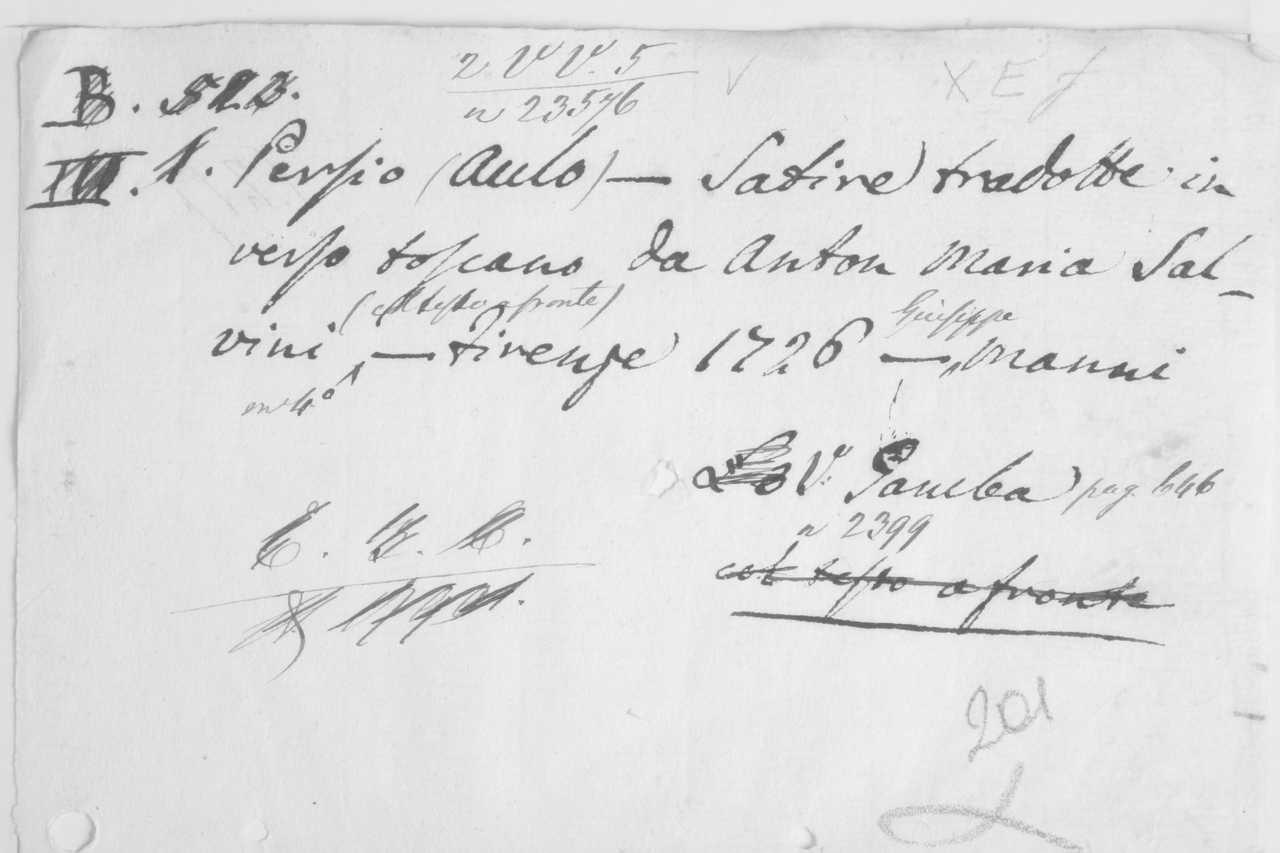 2 V V. 5
n 23576
X E f
B. 523.
III. 1. Persio (Aulo) — Satire tradotte in
verso toscano da Anton Maria Sal-
(col testo a fronte) Giuseppe
vini — Firenze 1726 — Manni
in 4º
V. Gamba pag. 646
n 2399
col testo a fronte
201